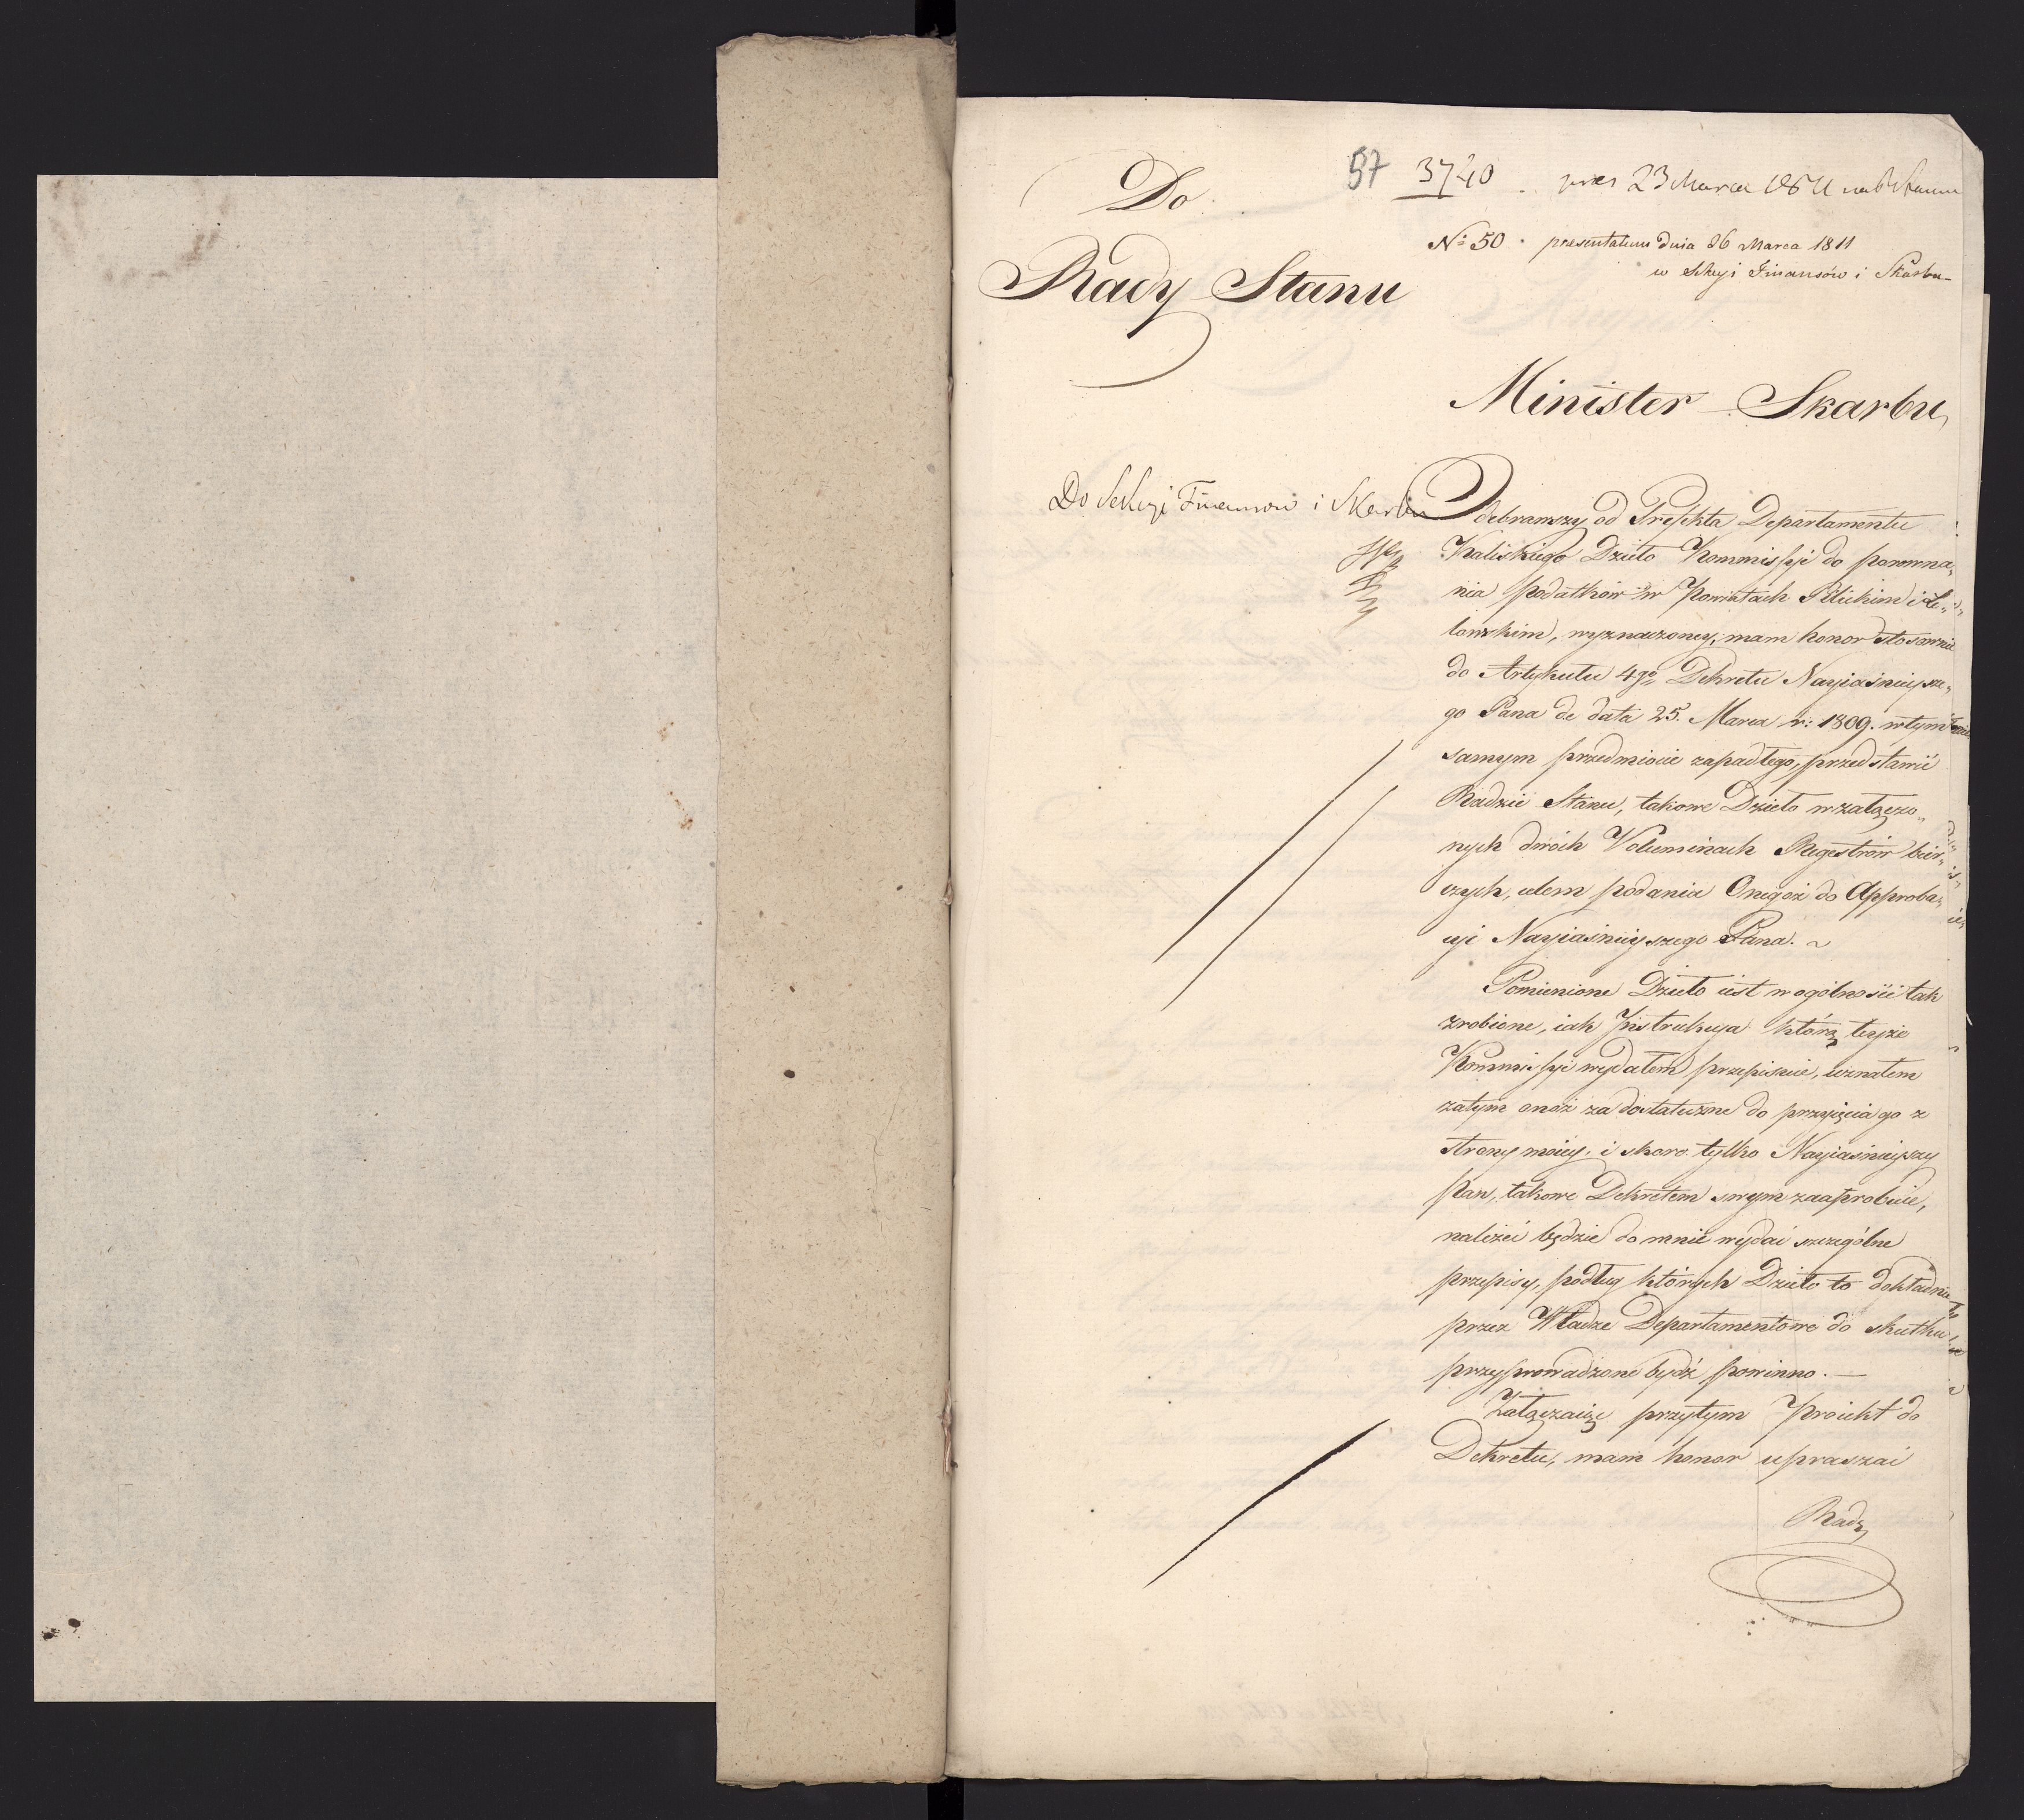 57 3740 . pres 23 Marca 1811 na R Stanu
Do
N: 50 . presentatum dnia 26 Marca 1811
w Sekcyi Finansów i Skarbu
Rady Stanu
Minister Skarbu
Do Sekcyi Finansow i Skarbu
Odebrawszy od Prefekta Departamentu
Kaliskiego Dzieło Kommissyi do porowna„
nia podatkow w Powiatach Pilickim i Le„
lowskim, wyznaczoney, mam honor stosownie
do Artykułu 4go Dekretu Nayiaśnieysze„
go Pana de data 25. Marca r: 1809. w tymże
samym przedmiocie zapadłego, przedstawić
Radzie Stanu, takowe Dzieło w załączo„
nych dwóch Voluminach Regestrów bier„
czych, celem podania Onegoż do Approba„
cyi Nayiaśnieyszego Pana. ~
Pomienione Dzieło iest w ogólności tak
zrobione, iak Instrukcya którą teyże
Kommissyi wydałem przepisuie, uznałem
zatym onoż za dostateczne do przyięcia go z
strony moiey, i skoro tylko Nayiaśnieyszy
Pan, takowe Dekretem swym zaaprobuie,
należeć będzie do mnie wydać szczególne
przepisy, podług których Dzieło to dokładnie
przez Władze Departamentowe do skutku
przyprowadzone bydź powinno. —
Załączaiąc przytym Proiekt do
Dekretu, mam honor upraszać
Rady